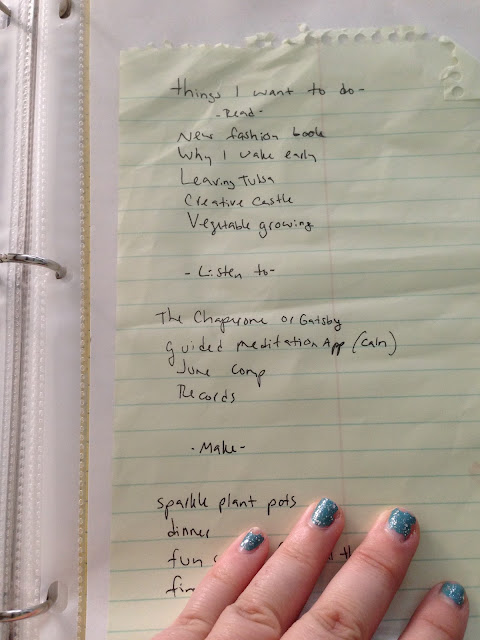 things I want to do-
-Read-
New fashion book
Why I wake early
Leaving Tulsa
Creative Castle
Vegetable growing
-Listen to-
The Chaperone or Gatsby
guided meditation App (calm)
June comp
Records
-Make-
sparkle plant pots
dinner
fun